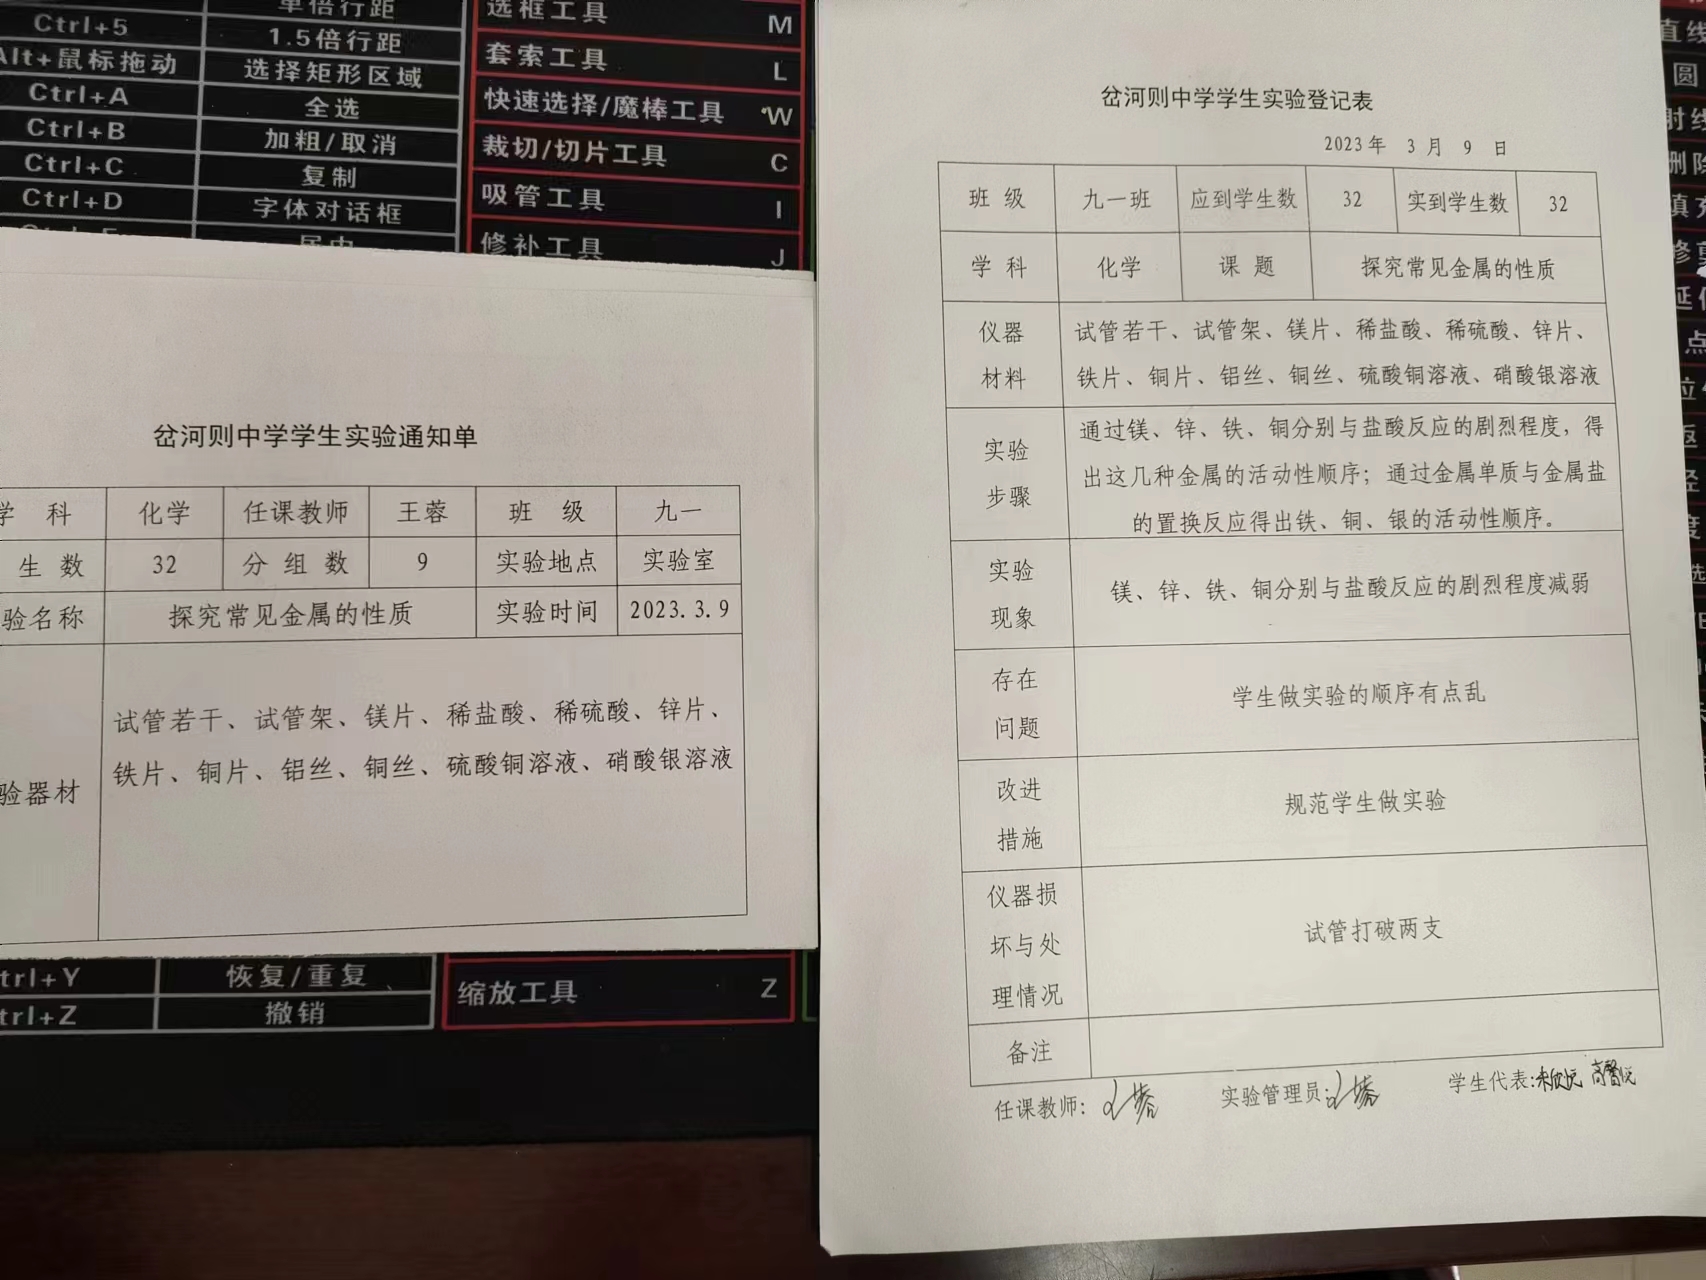 Ctrl+5 1.5倍行距
Alt+鼠标拖动 选择矩形区域
Ctrl+A 全选
Ctrl+B 加粗/取消
Ctrl+C 复制
Ctrl+D 字体对话框
居中
选框工具 M
套索工具 L
快速选择/魔棒工具 W
裁切/切片工具 C
吸管工具 I
修补工具 J
岔河则中学学生实验通知单
学 科 化学 任课教师 王蓉 班 级 九一
生 数 32 分 组 数 9 实验地点 实验室
验名称 探究常见金属的性质 实验时间 2023.3.9
验器材
试管若干、试管架、镁片、稀盐酸、稀硫酸、锌片、
铁片、铜片、铝丝、铜丝、硫酸铜溶液、硝酸银溶液
trl+Y 恢复/重复
trl+Z 撤销
缩放工具 Z
岔河则中学学生实验登记表
2023年 3 月 9 日
班 级 九一班 应到学生数 32 实到学生数 32
学 科 化学 课 题 探究常见金属的性质
仪器
材料
试管若干、试管架、镁片、稀盐酸、稀硫酸、锌片、
铁片、铜片、铝丝、铜丝、硫酸铜溶液、硝酸银溶液
实验
步骤
通过镁、锌、铁、铜分别与盐酸反应的剧烈程度，得
出这几种金属的活动性顺序；通过金属单质与金属盐
的置换反应得出铁、铜、银的活动性顺序。
实验
现象
镁、锌、铁、铜分别与盐酸反应的剧烈程度减弱
存在
问题
学生做实验的顺序有点乱
改进
措施
规范学生做实验
仪器损
坏与处
理情况
试管打破两支
备注
任课教师：王蓉 实验管理员：王蓉 学生代表：
直线
圆
射线
删除
填充
点